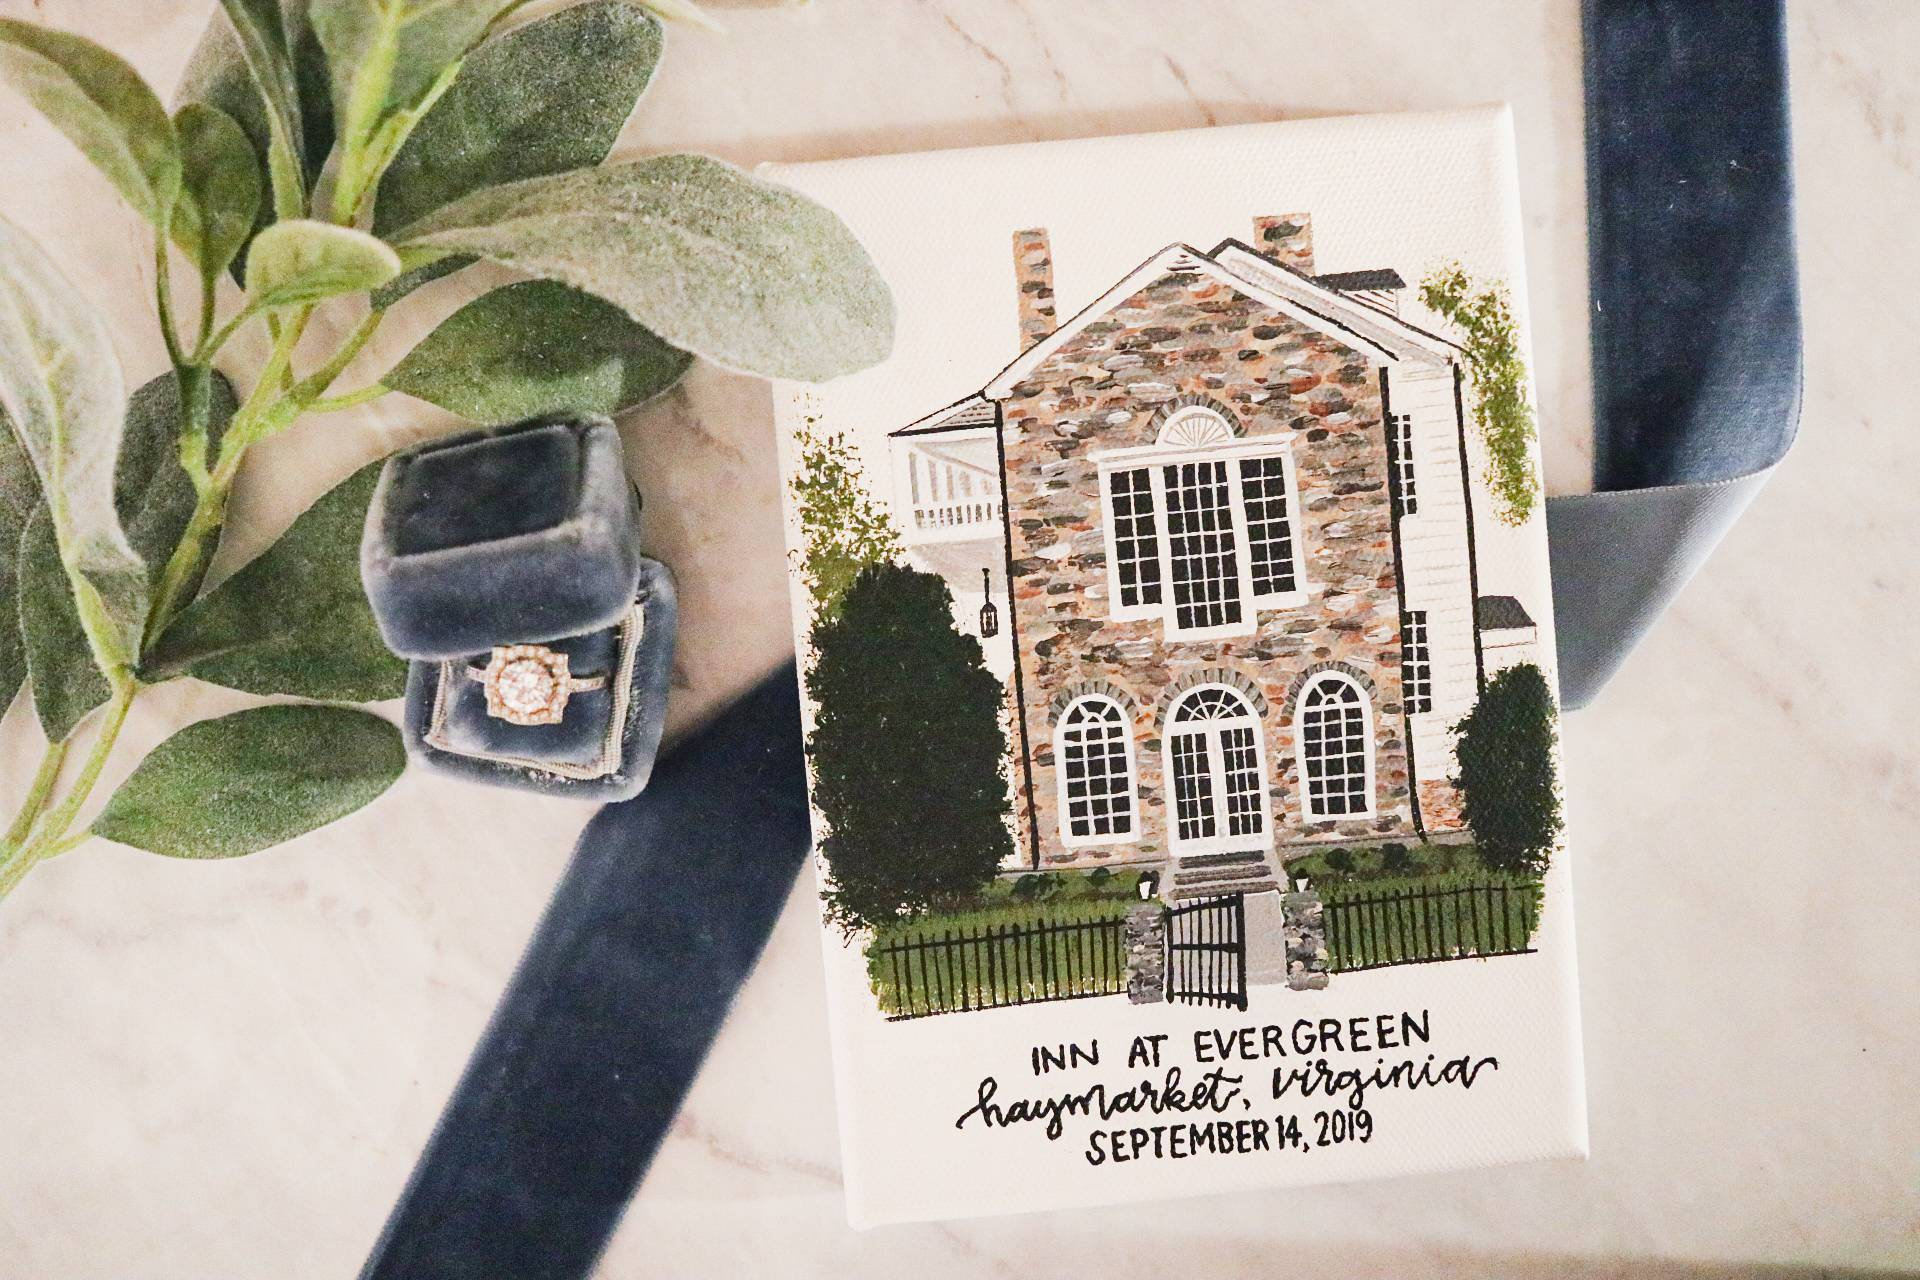 INN AT EVERGREEN
haymarket, virginia
SEPTEMBER 14, 2019